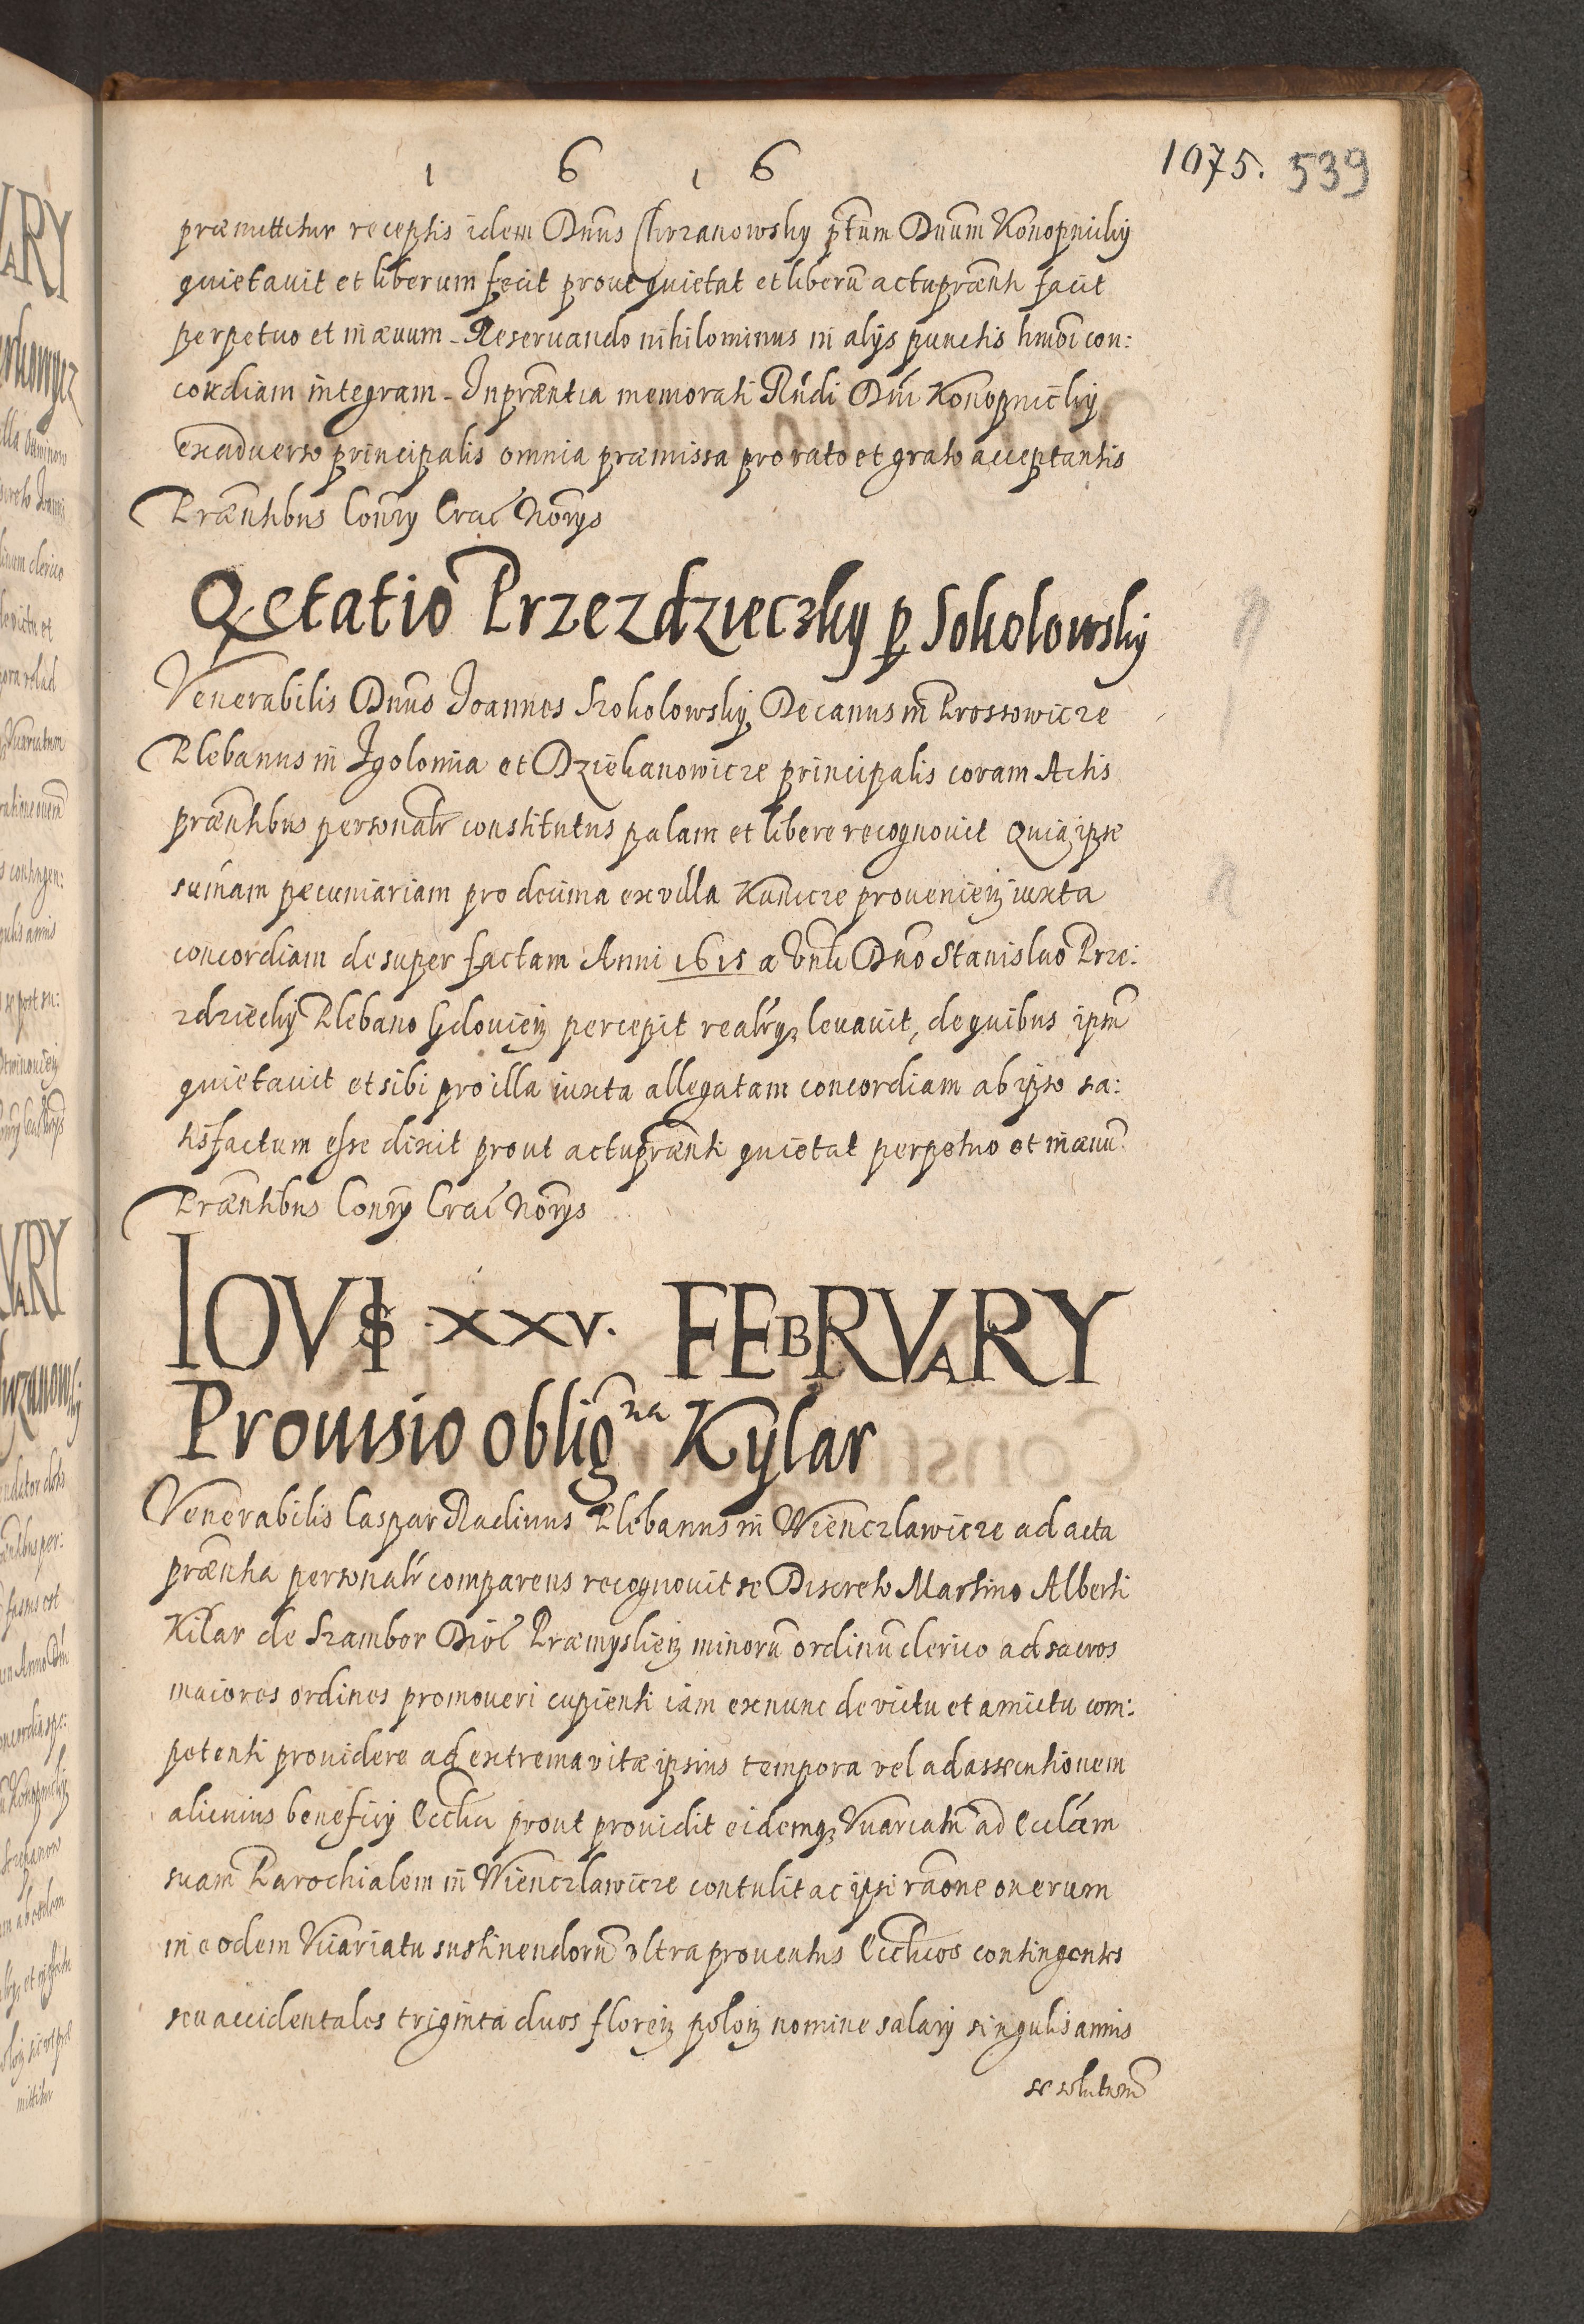 1 6 1 6
1075. 539
præmittitur receptis idem Dnus Chrzanowsky ptum Dnum Konopnicky
quietauit et liberum fecit prout quietat et liberũ actu prænti facit
perpetuo et in æuum - Reseruando nihilominus in alÿs punctis hmoi con:
cordiam integram - In præntia memorati Rndi Dni Konopnicky
ex aduerso principalis omnia præmissa pro rato et grato acceptantis
Præntibus Conrÿ Crac Norÿs
Qetatio Przezdzieczky p Sokolowsky
Venerabilis Dnus Joannes Szokolowsky Decanus in Prossowicze
Plebanus in Jgolomia et Dziekanowicze principalis coram Actis
præntibus personalr constitutus palam et libere recognouit Quia ipse
sumam pecuniariam pro decima ex villa Kunicze proueniẽ iuxta
concordiam desuper factam Anni 1615 a Vnli Dno Stanislao Prze:
zdziecky Plebano Gdouieñ percepit realrq leuauit, de quibus ipm
quietauit et sibi pro illa iuxta allegatam concordiam ab ipso sa:
tisfactum esse dixit prout actu prænti quietat perpetuo et in æuũ
Præntibus Conrÿ Crac Norÿs
IOVIS · XXV · FEBRVARY
Prouisio oblig^na Kylar
Venerabilis Caspar Radinus Plebanus in Wienczlawicze ad acta
præntia personalr comparens recognouit se Discreto Martino Alberti
Kilar de Szambor Dioc Præmyslieñ minorũ ordinũ clerico ad sacros
maiores ordines promoueri cupienti iam ex nunc de victu et amictu com:
petenti prouidere ad extrema vitæ ipsius tempora vel ad assecutionem
alicuius beneficÿ Ecclici prout prouidit eidemq Vicariatũ ad Ecclam
suam Parochialem in Wienczlawicze contulit ac ipsi raone onerum
in eodem Vicariatu sustinendorũ vltra prouentus Ecclicos contingentes
seu accidentales triginta duos floreñ poloñ nomine salarÿ singulis annis
se soluturũ